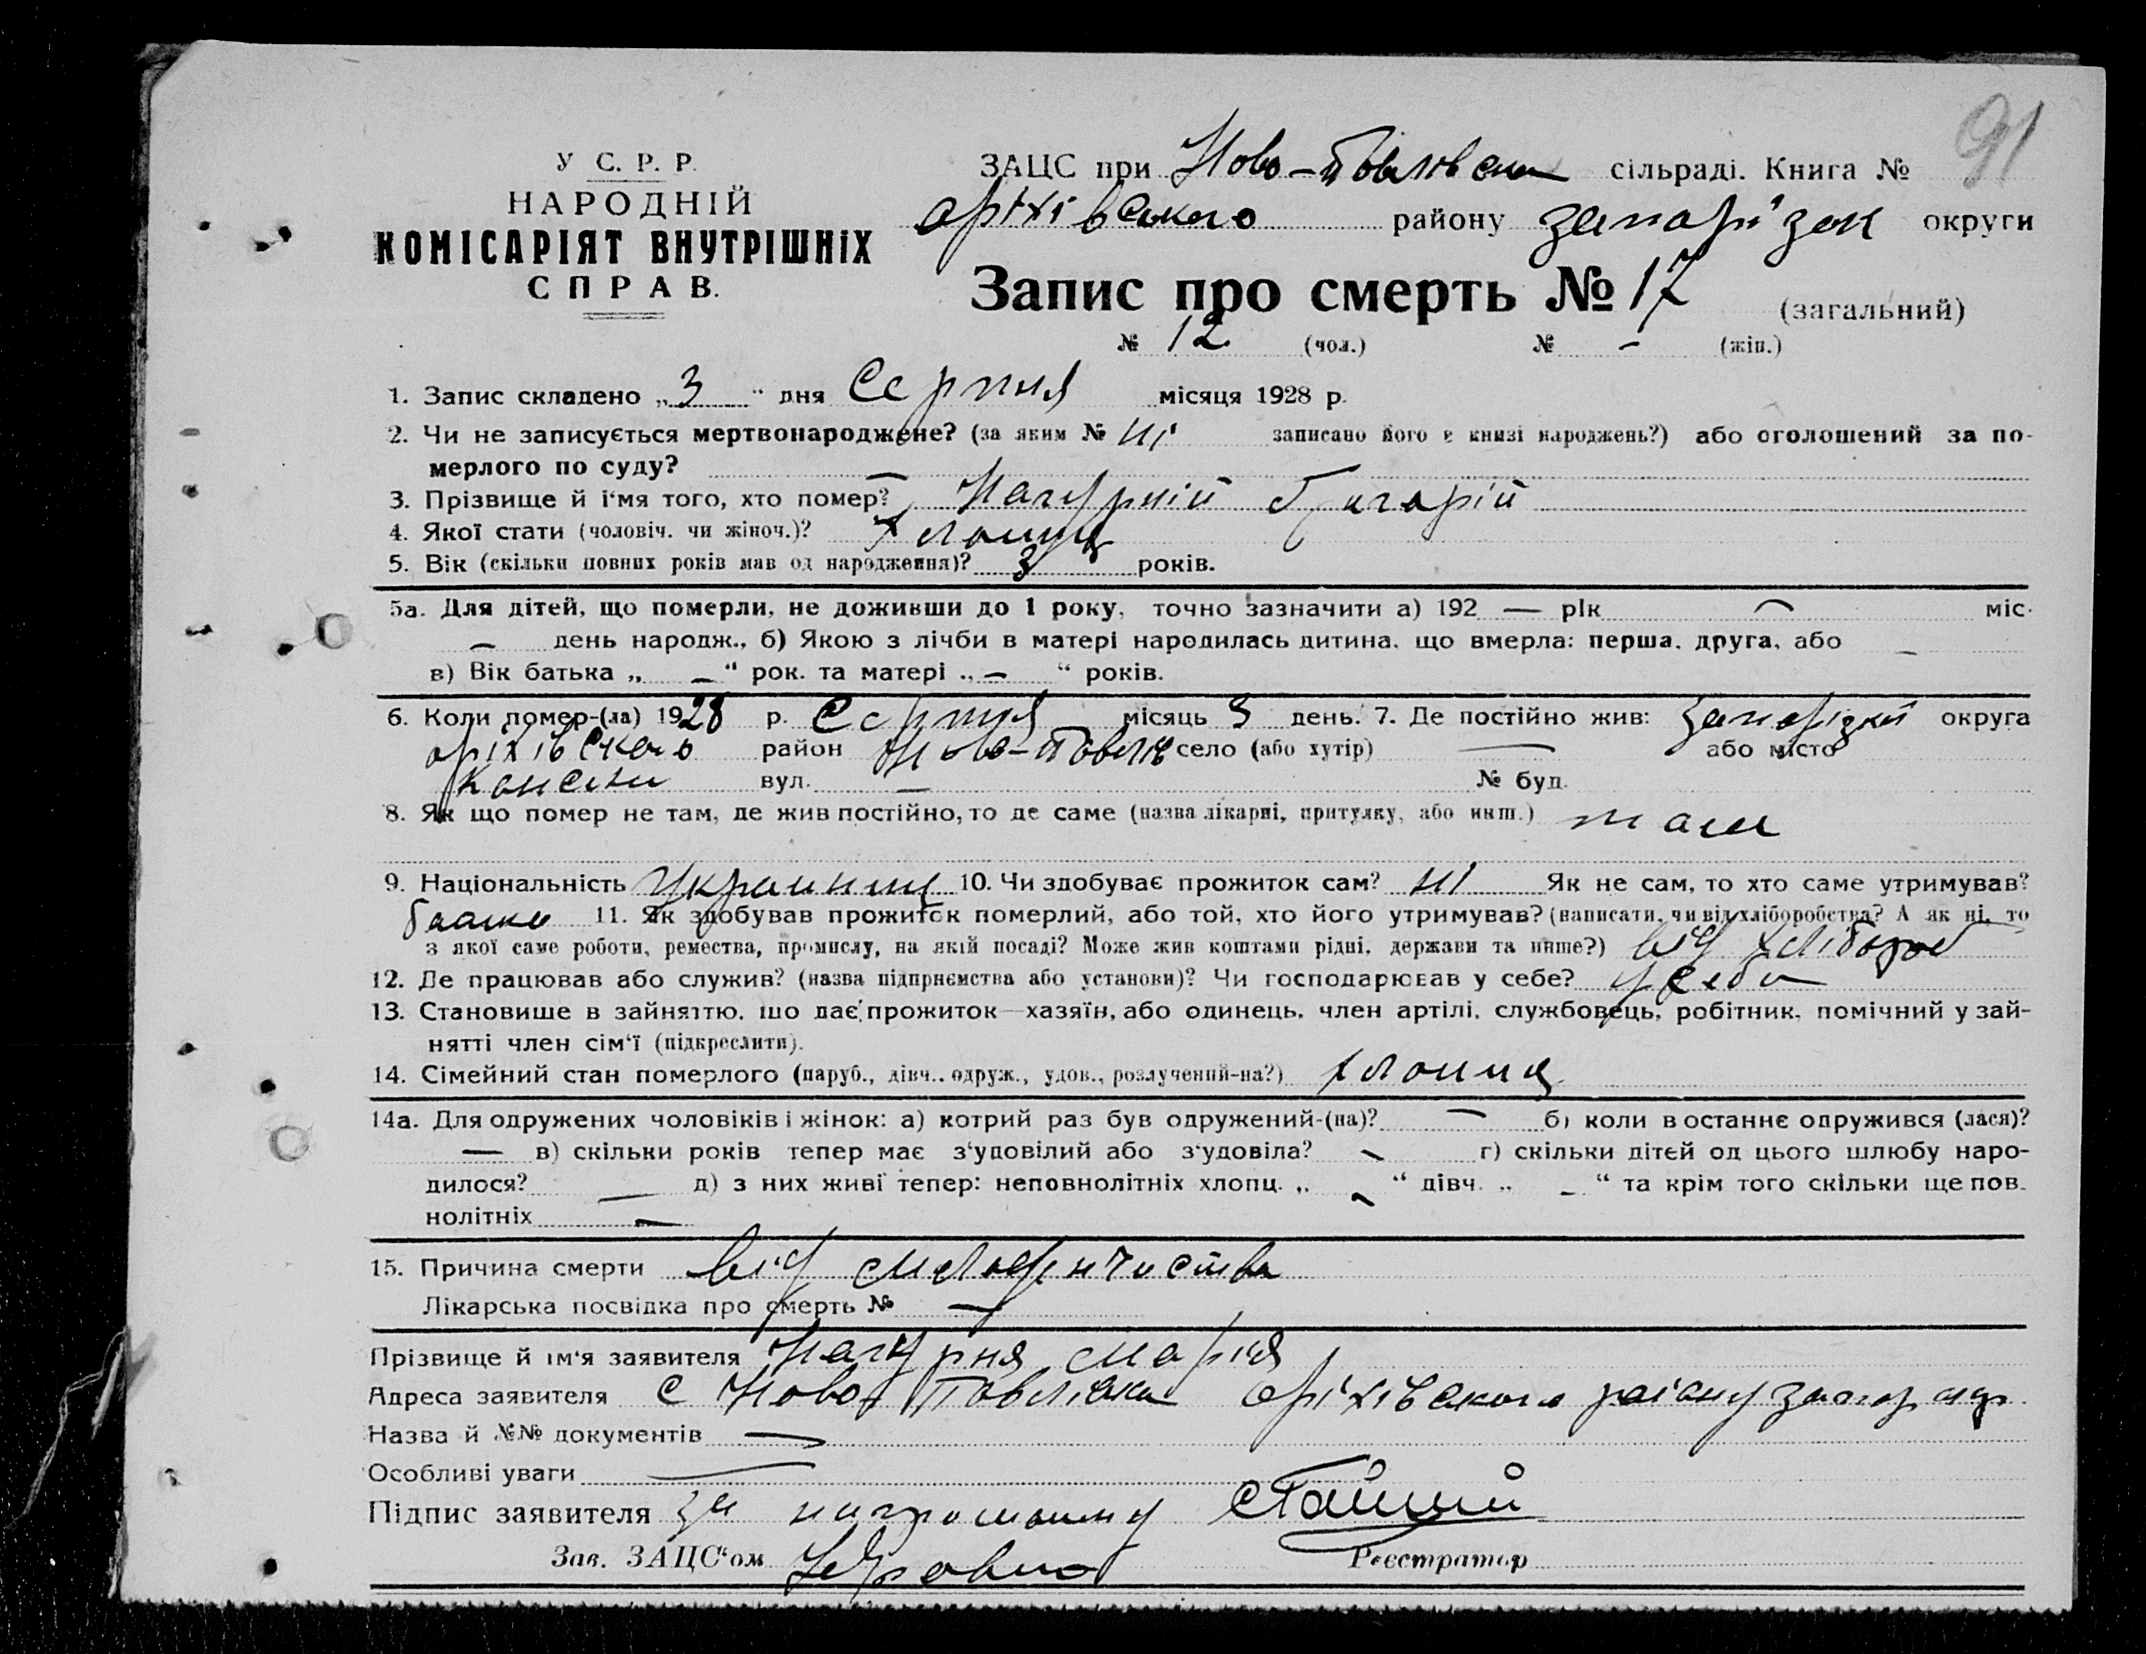 91
У С. Р. Р.
НАРОДНІЙ
КОМІСАРІЯТ ВНУТРІШНІХ
СПРАВ.
ЗАЦС при Ново-Павлівськ сільраді. Книга №
оріхівського району запорізьк округи
Запис про смерть № 17 (загальний)
№ 12 (чол.) № - (жін.)
1. Запис складено „3" дня Серпня місяця 1928 р.
2. Чи не записується мертвонароджене? (за яким № ні записано його в книзі народжень?) або оголошений за по-
мерлого по суду? —
3. Прізвище й і'мя того, хто помер? Григорій
4. Якої стати (чоловіч. чи жіноч.)? хлопець
5. Вік (скільки повних років мав од народження)? 3 років.
5а. Для дітей, що померли, не доживши до 1 року, точно зазначити а) 192 — рік — міс.
— день народж., б) Якою з лічби в матері народилась дитина, що вмерла: перша, друга, або —
в) Вік батька „ — " рок. та матері „ — " років.
6. Коли помер-(ла) 1928 р. Серпня місяць 3 день. 7. Де постійно жив: запорізькій округа
оріхівського район Ново-Павлів село (або хутір) — або місто
вул. — № буд.
8. Як що помер не там, де жив постійно, то де саме (назва лікарні, притулку, або инш.) там
9. Національність Украинец 10. Чи здобуває прожиток сам? ні Як не сам, то хто саме утримував?
батько 11. Як здобував прожиток померлий, або той, хто його утримував? (написати, чи від хліборобства? А як ні, то
з якої саме роботи, ремества, промислу, на якій посаді? Може жив коштами рідні, держави та инше?) від хлібороб
12. Де працював або служив? (назва підприємства або установи)? Чи господарював у себе? у себе
13. Становище в зайняттю, що дає прожиток—хазяїн, або одинець, член артілі, службовець, робітник, помічний у зай-
нятті член сім'ї (підкреслити).
14. Сімейний стан померлого (паруб., дівч., одруж., удов., розлучений-на?) хлопец
14а. Для одружених чоловіків і жінок: а) котрий раз був одружений-(на)? — б) коли в останнє одружився (лася)?
— в) скільки років тепер має з'удовілий або з'удовіла? — г) скільки дітей од цього шлюбу наро-
дилося? — д) з них живі тепер: неповнолітніх хлопц. „ — " дівч. „ — " та крім того скільки ще пов-
нолітніх —
15. Причина смерти від младенчиства
Лікарська посвідка про смерть № —
Прізвище й ім'я заявителя Марія
Адреса заявителя с Ново Павлівка Оріхівского району
Назва й №№ документів —
Особливі уваги —
Підпис заявителя за
Зав. ЗАЦС'ом Реєстратор